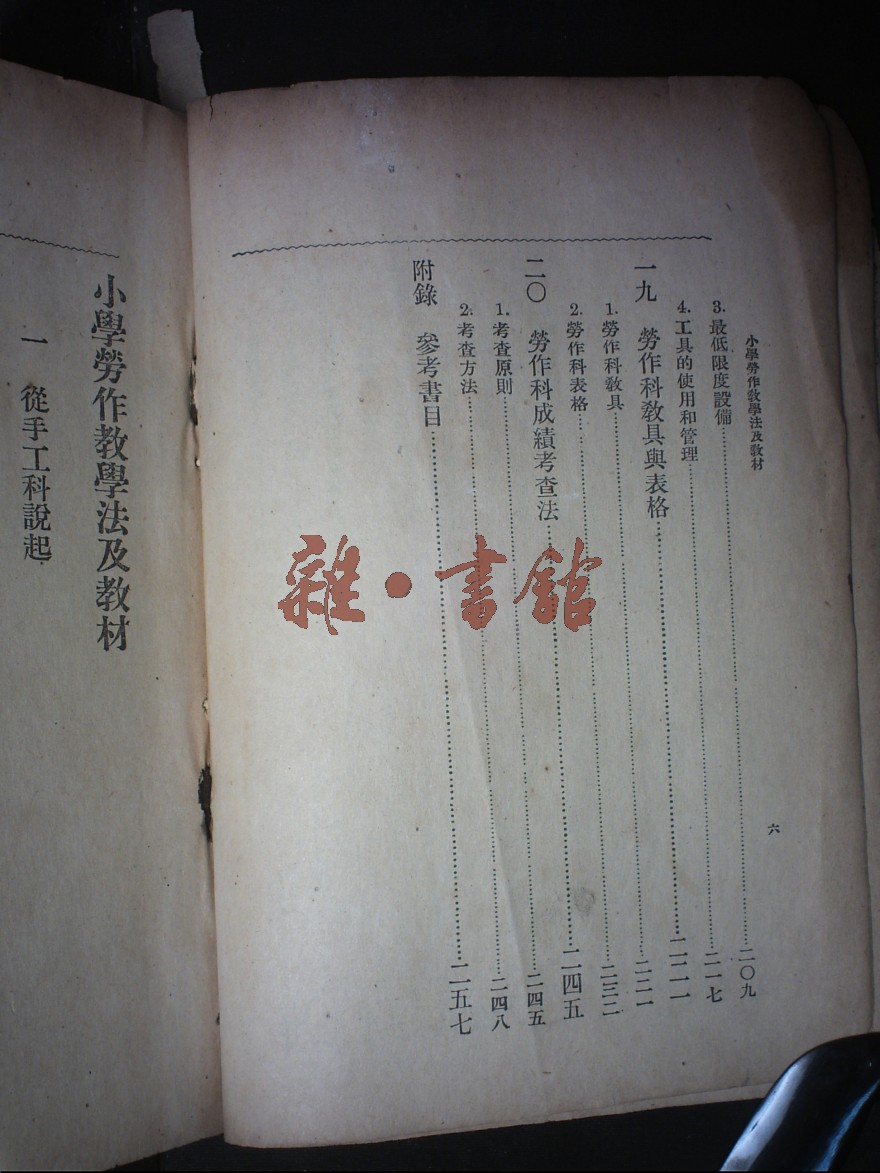 小學勞作教學法及教材
六
3.最低限度設備……二〇九
4.工具的使用和管理……二一七
一九　勞作科教具與表格……二二一
1.勞作科教具……二二一
2.勞作科表格……二三二
二〇　勞作科成績考查法……二四五
1.考查原則……二四五
2.考查方法……二四八
附錄　參考書目……二五七
小學勞作教學法及教材
一　從手工科說起
雜·書館